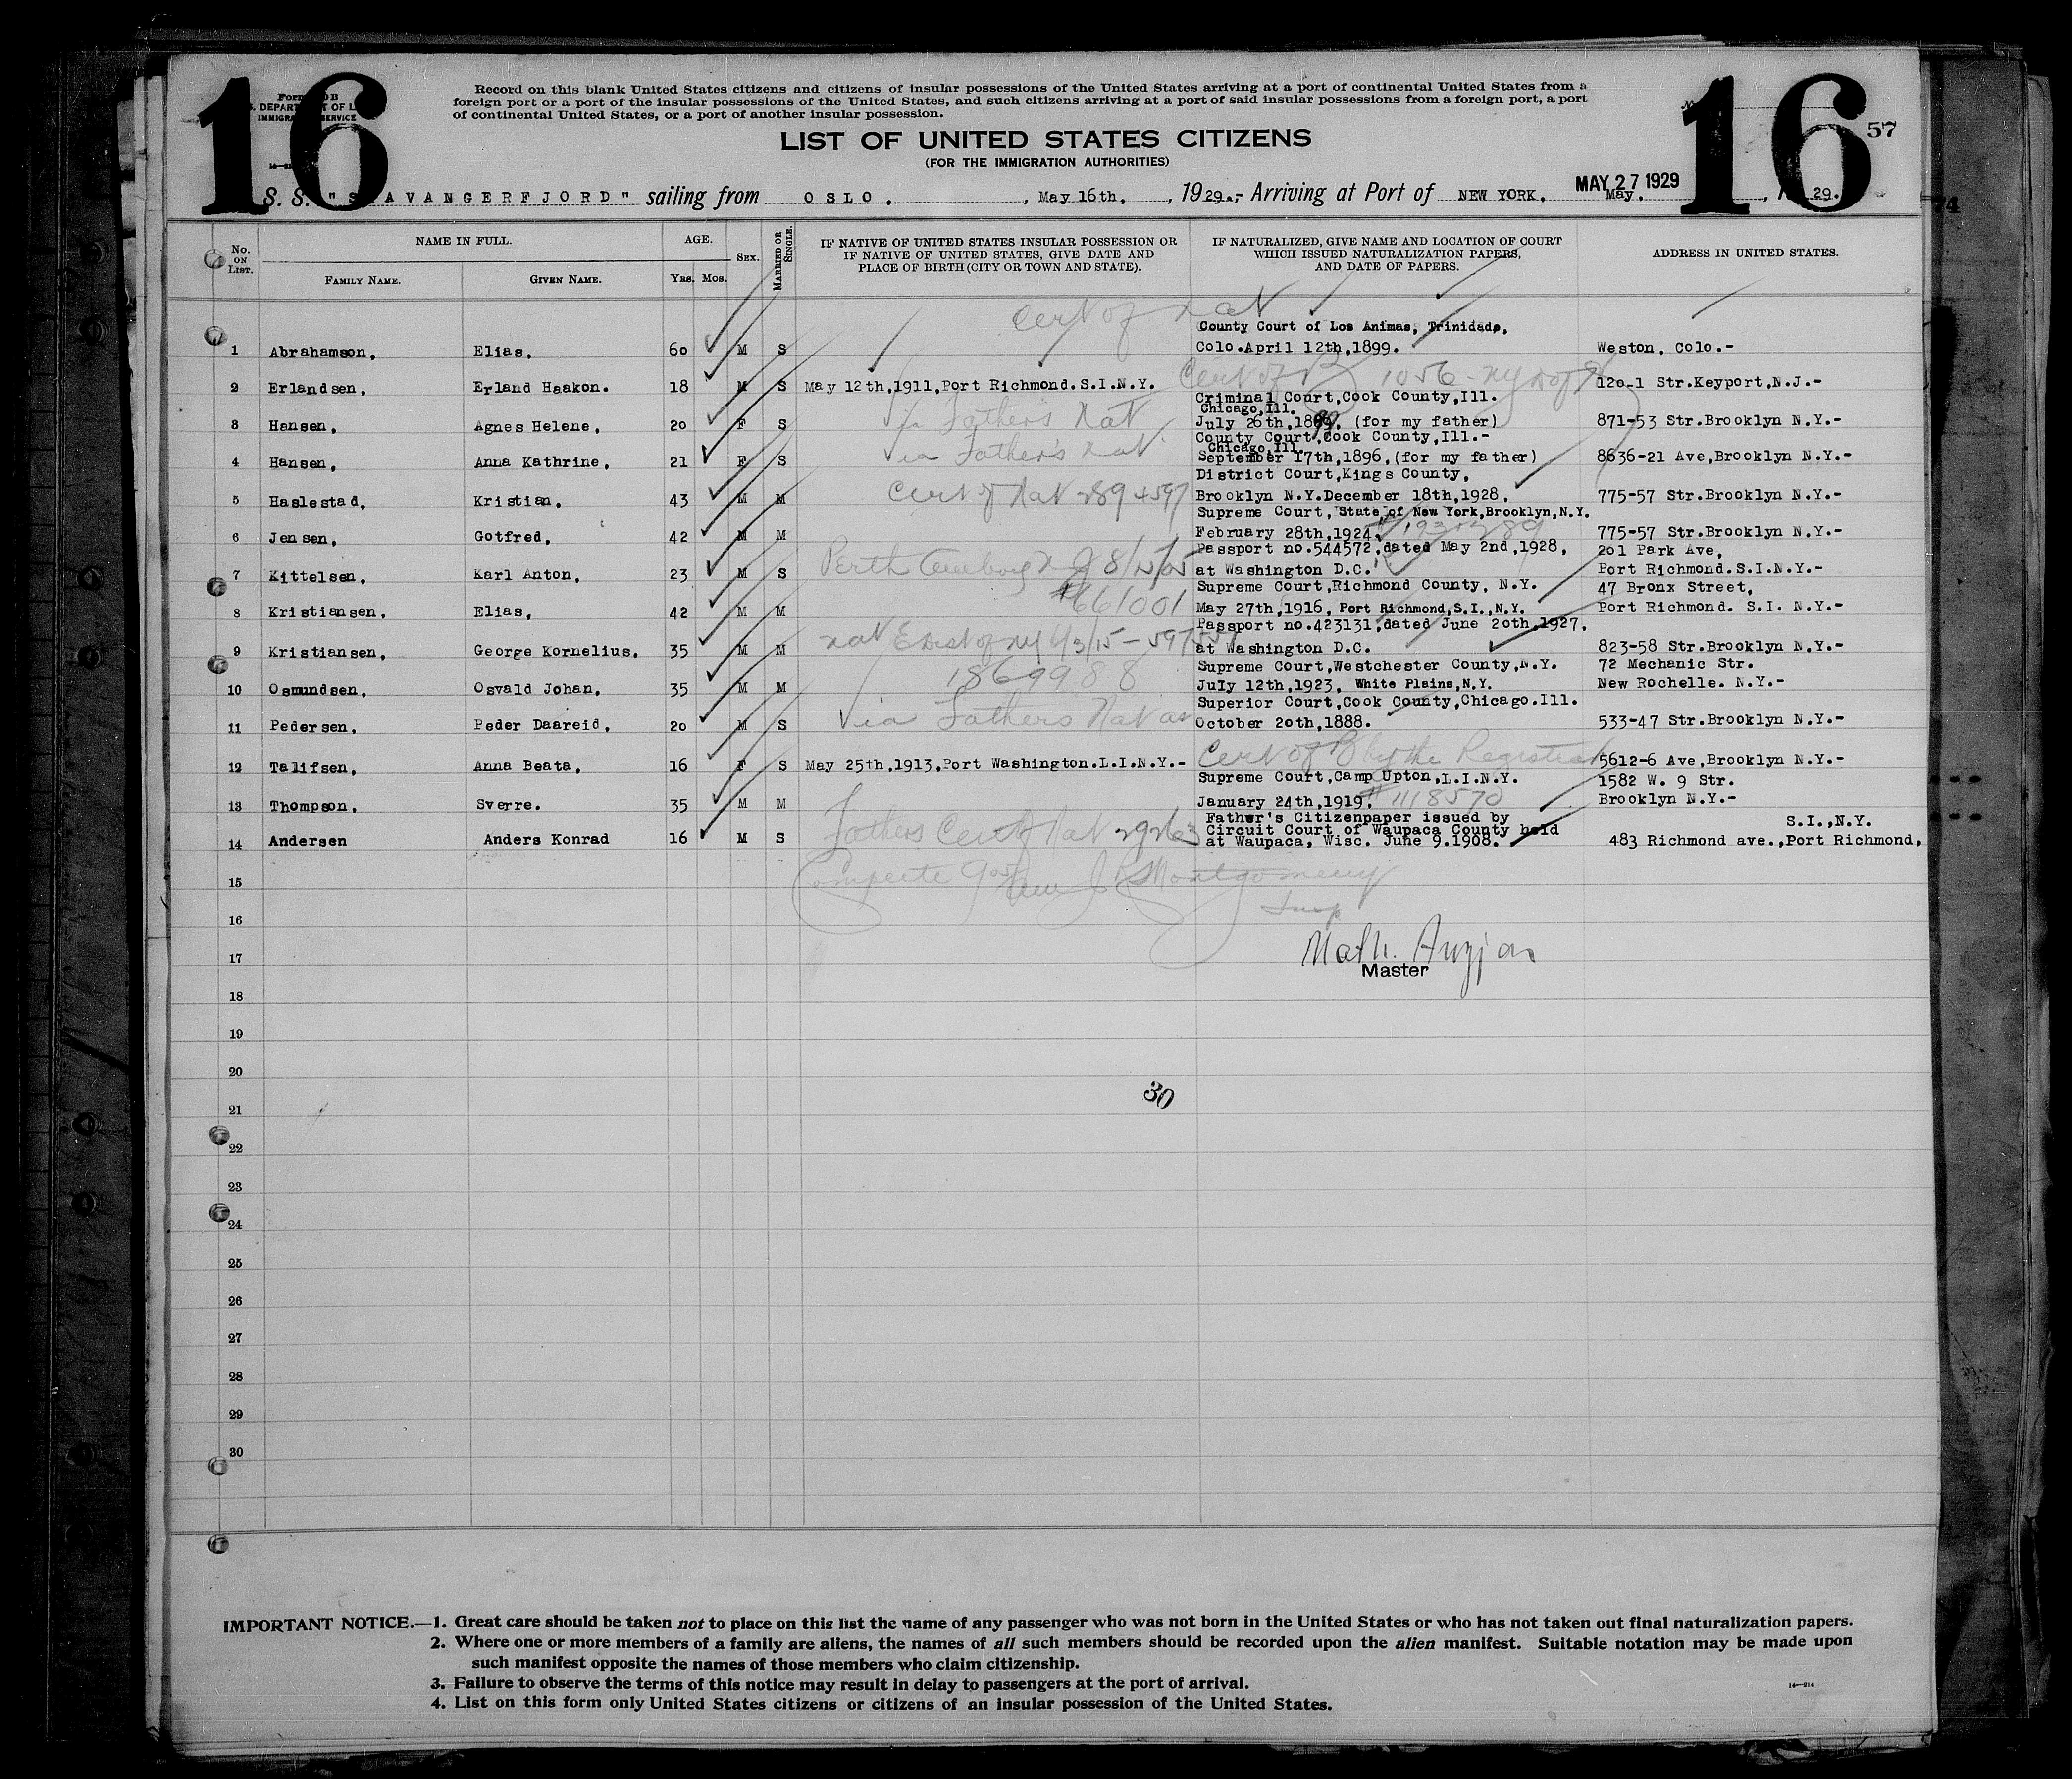 16
16
57
Record on this blank United States citizens and citizens of insular possessions of the United States arriving at a port of continental United States from a
foreign port or a port of the insular possessions of the United States, and such citizens arriving at a port of said insular possessions from a foreign port, a port
of continental United States, or a port of another insular possession.
LIST OF UNITED STATES CITIZENS
(FOR THE IMMIGRATION AUTHORITIES)
MAY 27 1929
S. S. "S AVANGERFJORD" sailing from OSLO. , May 16th. , 1929.- Arriving at Port of NEW YORK. May. , 1 29.
No. ON LIST. NAME IN FULL. AGE. SEX. MARRIED OR SINGLE. IF NATIVE OF UNITED STATES INSULAR POSSESSION OR IF NATIVE OF UNITED STATES, GIVE DATE AND PLACE OF BIRTH (CITY OR TOWN AND STATE). IF NATURALIZED, GIVE NAME AND LOCATION OF COURT WHICH ISSUED NATURALIZATION PAPERS, AND DATE OF PAPERS. ADDRESS IN UNITED STATES.
FAMILY NAME. GIVEN NAME. YRS. MOS.
Cert of Nat
County Court of Los Animas, Trinidado,
1 Abrahamson, Elias. 60 M S Colo.April 12th,1899. Weston, Colo.-
2 Erlandsen, Erland Haakon. 18 M S May 12th,1911,Port Richmond.S.I.N.Y. Cert of B 1056 - 120-1 Str.Keyport,N.J.-
Criminal Court,Cook County,Ill.
Chicago,Ill.
3 Hansen, Agnes Helene, 20 F S Father's Nat July 26th,1899. (for my father) 871-53 Str.Brooklyn N.Y.-
County Court,Cook County,Ill.-
Chicago,Ill.
4 Hansen, Anna Kathrine, 21 F S Via Father's Nat September 17th,1896,(for my father) 8636-21 Ave,Brooklyn N.Y.-
District Court,Kings County,
5 Haslestad, Kristian, 43 M M Cert of Nat 2894597 Brooklyn N.Y.December 18th,1928, 775-57 Str.Brooklyn N.Y.-
Supreme Court,State of New York,Brooklyn,N.Y.
6 Jensen, Gotfred, 42 M M February 28th,1924. 775-57 Str.Brooklyn N.Y.-
Passport no.544572,dated May 2nd,1928, 201 Park Ave,
7 Kittelsen, Karl Anton, 23 M S Perth Amboy N J 8/15/05 at Washington D.C. Port Richmond.S.I.N.Y.-
Supreme Court,Richmond County, N.Y. 47 Bronx Street,
8 Kristiansen, Elias, 42 M M #661001 May 27th,1916, Port Richmond,S.I.,N.Y. Port Richmond. S.I. N.Y.-
Passport no.423131,dated June 20th.1927.
9 Kristiansen, George Kornelius. 35 M M at Washington D.C. 823-58 Str.Brooklyn N.Y.-
Supreme Court,Westchester County,N.Y. 72 Mechanic Str.
10 Osmundsen, Osvald Johan, 35 M M 1869988 July 12th,1923, White Plains,N.Y. New Rochelle. N.Y.-
Superior Court,Cook County,Chicago.Ill.
11 Pedersen, Peder Daareid, 20 M S Via Fathers Nat October 20th,1888. 533-47 Str.Brooklyn N.Y.-
12 Talifsen, Anna Beata, 16 F S May 25th,1913,Port Washington.L.I.N.Y.- Cert of B by the 5612-6 Ave,Brooklyn N.Y.-
Supreme Court,Camp Upton,L.I.N.Y. 1582 W. 9 Str.
13 Thompson, Sverre. 35 M M January 24th,1919. #1118570 Brooklyn N.Y.-
Father's Citizenpaper issued by S.I.,N.Y.
Circuit Court of Waupaca County held
14 Andersen Anders Konrad 16 M S Fathers Cert of Nat at Waupaca, Wisc. June 9.1908. 483 Richmond ave.,Port Richmond,
15 Montgomery
16 Insp
17
Master
18
19
20
30
21
22
23
24
25
26
27
28
29
30
IMPORTANT NOTICE.—1. Great care should be taken not to place on this list the name of any passenger who was not born in the United States or who has not taken out final naturalization papers.
2. Where one or more members of a family are aliens, the names of all such members should be recorded upon the alien manifest. Suitable notation may be made upon
such manifest opposite the names of those members who claim citizenship.
3. Failure to observe the terms of this notice may result in delay to passengers at the port of arrival.
4. List on this form only United States citizens or citizens of an insular possession of the United States.
14—214